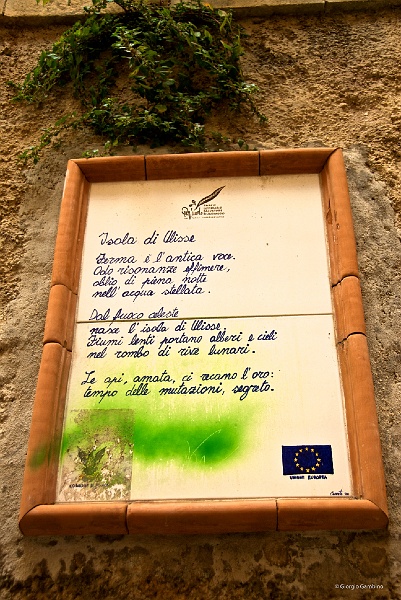 Isola di Ulisse
Ferma è l'antica voce.
Odo risonanze effimere,
oblio di piena notte
nell'acqua stellata.
Dal fuoco celeste
nasce l'isola di Ulisse.
Fiumi lenti portano alberi e cieli
nel rombo di rive lunari.
Le api, amata, ci recano l'oro:
tempo delle mutazioni, segreto.
UNIONE EUROPEA
© Giorgio Gambino